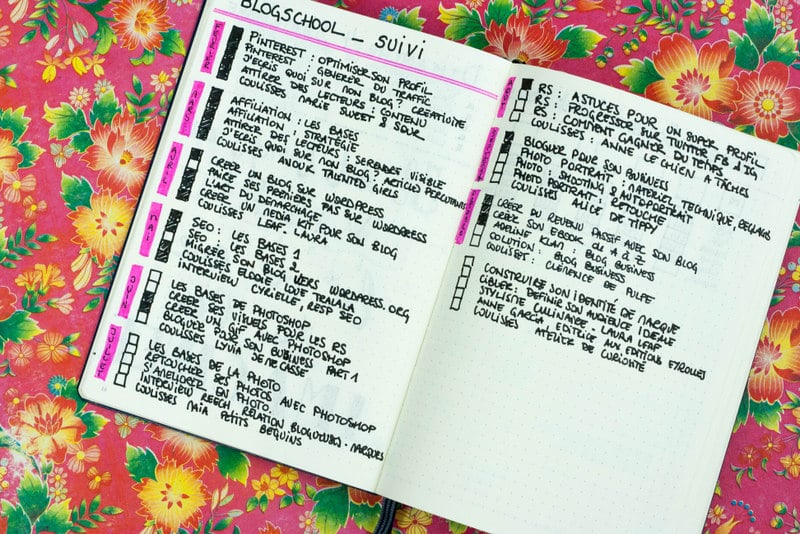 BLOGSCHOOL _ SUIVI
FÉVRIER
PINTEREST : OPTIMISER SON PROFIL
PINTEREST : GÉNÉRER DU TRAFFIC
J'ÉCRIS QUOI SUR MON BLOG? CRÉATIVITÉ
ATTIRER DES LECTEURS CONTENU
COULISSES MARIE SWEET & SOUR
MARS
AFFILIATION : LES BASES
AFFILIATION : STRATÉGIE
ATTIRER DES LECTEURS : SE RENDRE VISIBLE
J'ÉCRIS QUOI SUR MON BLOG? ARTICLE PERCUTANTS
COULISSES ANOUK TALENTED GIRLS
AVRIL
CRÉER UN BLOG SUR WORDPRESS
FAIRE SES PREMIERS PAS SUR WORDPRESS
L'ART DU DÉMARCHAGE
CRÉER UN MEDIA KIT POUR SON BLOG
COULISSES LEAF LAURA
MAI
SEO : LES BASES 1
SEO : LES BASES 2
MIGRER SON BLOG VERS WORDPRESS.ORG
COULISSES ELODIE LOVE TRALALA
INTERVIEW CYRIELLE, RESP SEO
JUIN
LES BASES DE PHOTOSHOP
CRÉER SES VISUELS POUR LES RS
CRÉER UN GIF AVEC PHOTOSHOP
BLOGUER POUR SON BUSINESS PART 1
COULISSES LYVIA
JUILLET
LES BASES DE LA PHOTO
RETOUCHER SES PHOTOS AVEC PHOTOSHOP
S'AMÉLIORER EN PHOTO
INTERVIEW REECH RELATION BLOGUEURS - MARQUES
COULISSES MAIA PETITS BÉGUINS
RS : ASTUCES POUR UN SUPER PROFIL
RS : PROGRESSER SUR TWITTER FB & IG
RS : COMMENT GAGNER DU TEMPS
COULISSES : ANNE LE CHIEN À TÂCHES
BLOGUER POUR SON BUSINESS
PHOTO PORTRAIT : MATÉRIEL, TECHNIQUE, RÉGLAGES
PHOTO : SHOOTING & AUTOPORTRAIT
PHOTO PORTRAIT : RETOUCHE
COULISSES ALICE DE TIPPY
CRÉER DU REVENU PASSIF AVEC SON BLOG
CRÉER SON EBOOK DE A À Z
ADELINE KLAM : BLOG BUSINESS
SOLUTION : BLOG BUSINESS
COULISSES : CLÉMENCE DE PULPE
CONSTRUIRE SON IDENTITÉ DE MARQUE
CIBLER : DÉFINIR SON AUDIENCE IDÉALE
STYLISME CULINAIRE - LAURA LEAF
ANNE GARCIA EDITRICE AUX EDITIONS EYROLLES
COULISSES ATELIER DE CURIOSITÉ